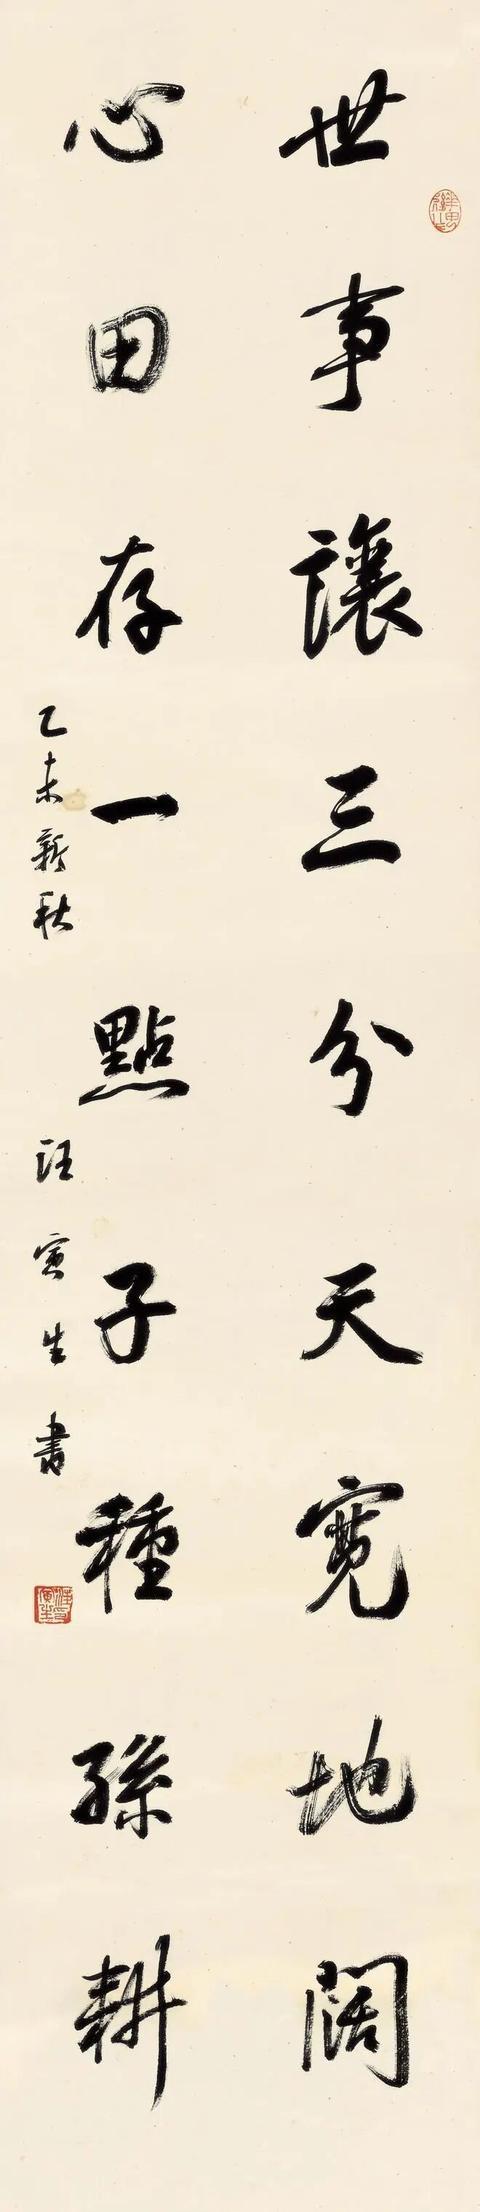 世事讓三分天寬地闊
心田存一點子種孫耕
乙未新秋 汪寅生書